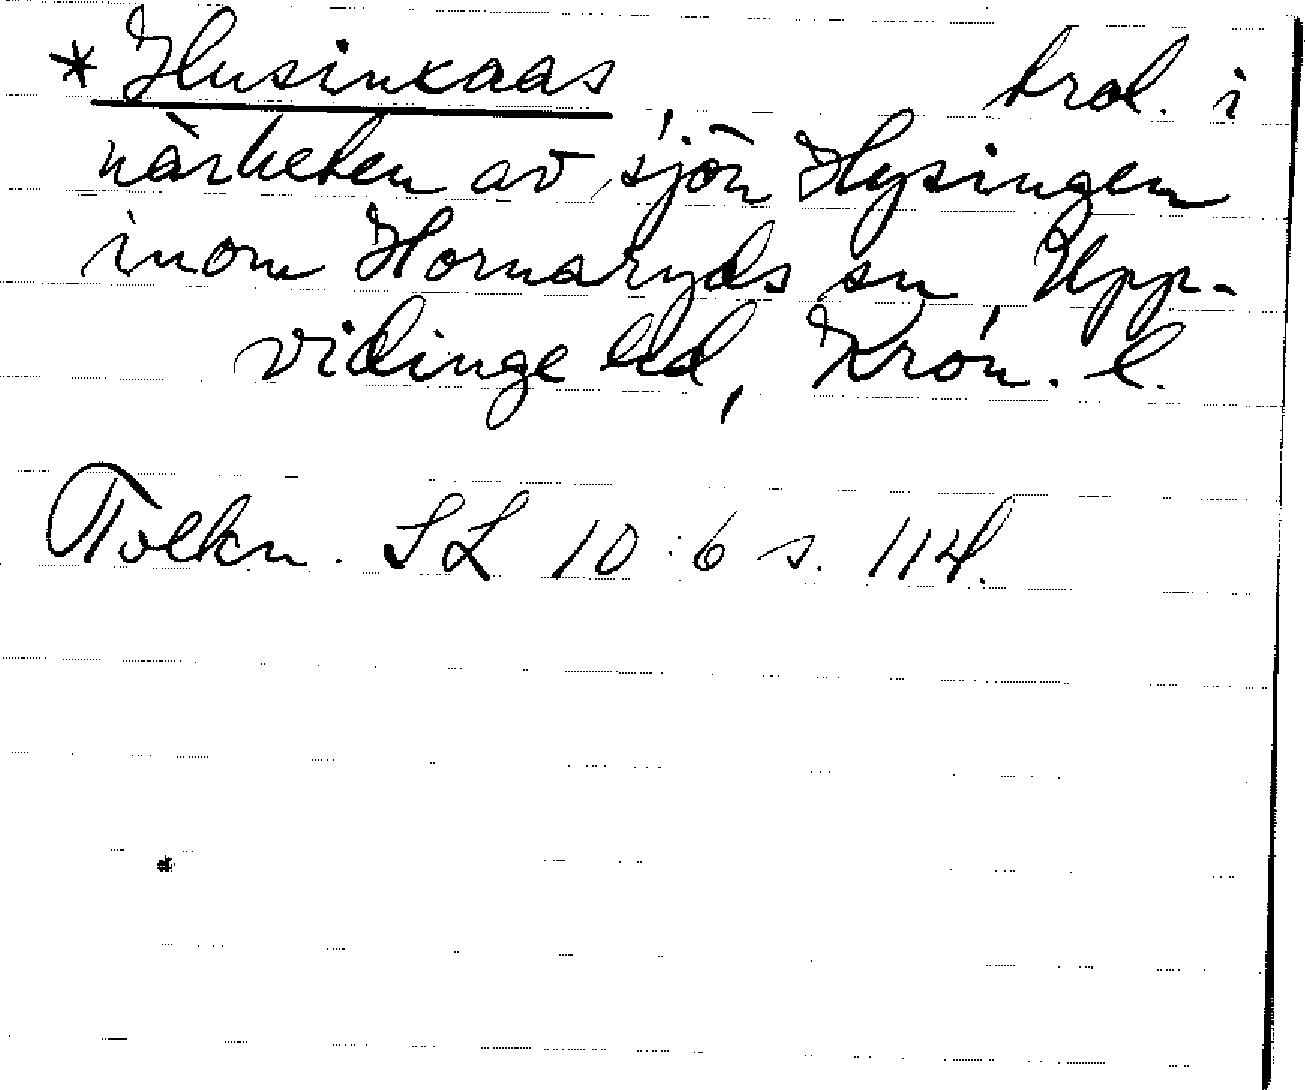 * Husinkaas trol. i
närheten av sjön Hysingen
inom Hornaryds sn Upp-
vidinge hd, Kron. l.
Tolkn. SL 10:6 s. 114.